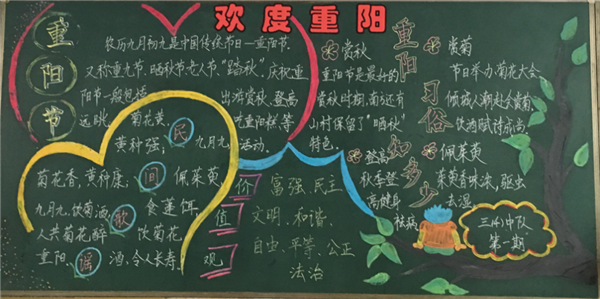 欢度重阳
重阳节
农历九月初九是中国传统节日—重阳节,
又称重九节、晒秋节、老人节、"踏秋"。庆祝重
阳节一般包括 出游赏秋、登高
远眺、 菊花黄, 吃重阳糕、等
黄种强; 九月九, 活动。
民间歌谣
菊花香,黄种康; 佩茱萸,
九月九,饮菊酒, 食蓬饵,
人共菊花醉 饮菊花
重阳、 酒,令人长寿、
价值观
富强、民主
文明、和谐、
自由、平等、公正
法治
重阳习俗知多少
赏秋
重阳节是最好的
赏秋时期,南方还有
山村保留了"晒秋"
特色。
登高
秋季登
高健身
祛病
赏菊
节日举办菊花大会,
倾城人潮赴会赏菊,
饮酒赋诗成尚
佩茱萸
茱萸香味浓,驱虫
去湿
三(4)中队
第一期